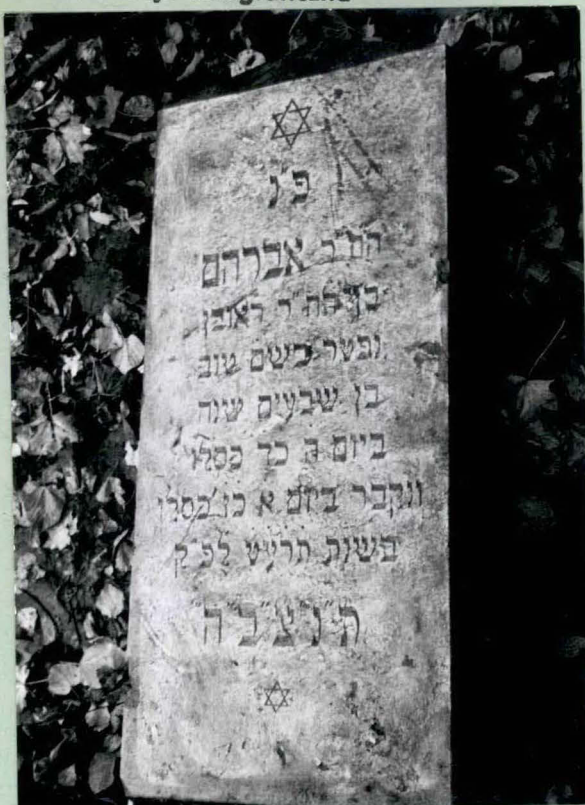 פ״נ
הח״ר אברהם
בן לח״ר ראובן
נפטר בשם טוב
בן שבעים שנה
ביום ה כד כסלו
ונקבר ביום א כז כסלו
בשנת תרע״ט לפ״ק
ת״נ״צ״ב״ה